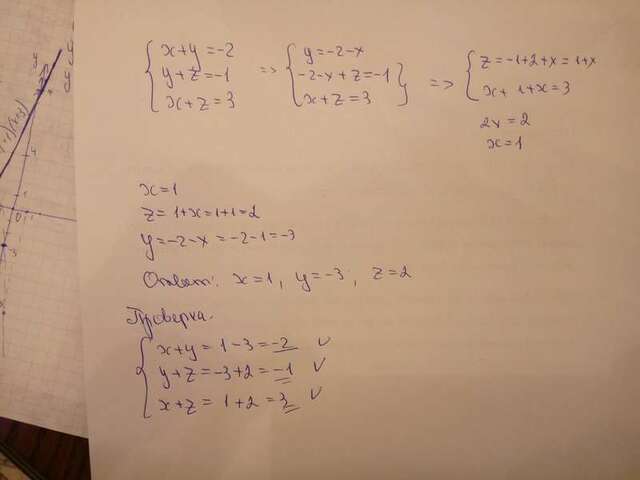 { x+y = -2 => { y = -2-x => { z = -1+2+x = 1+x
y+z = -1 -2-x+z = -1 } x+ 1+x = 3
x+z = 3 x+z = 3 2x = 2
x = 1
x = 1
z = 1+x = 1+1 = 2
y = -2-x = -2-1 = -3
Ответ: x = 1, y = -3, z = 2
Проверка.
{ x+y = 1-3 = -2 ✓
y+z = -3+2 = -1 ✓
x+z = 1+2 = 3 ✓